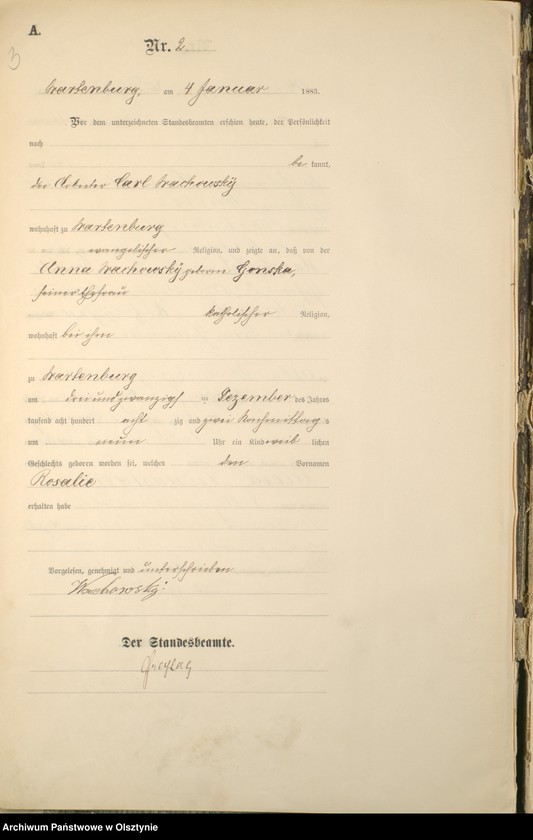 A.
3
Nr. 2
Wartenburg, am 4 Januar 1883.
Vor dem unterzeichneten Standesbeamten erschien heute, der Persönlichkeit
nach
be kannt,
der Arbeiter Carl Wachowský
wohnhaft zu Wartenburg
evangelischer Religion, und zeigte an, daß von der
Anna Wachowský geboren Gonska,
seiner Ehefrau
katholischer Religion,
wohnhaft bei ihm
zu Wartenburg
am dreiundzwanzigst en Dezember des Jahres
tausend acht hundert acht zig und zwei Nachmittag s
um neun Uhr ein Kind weib lichen
Geschlechts geboren worden sei, welches den Vornamen
Rosalie
erhalten habe
Vorgelesen, genehmigt und unterschrieben
Wachowský
Der Standesbeamte.
Freytag
Archiwum Państwowe w Olsztynie